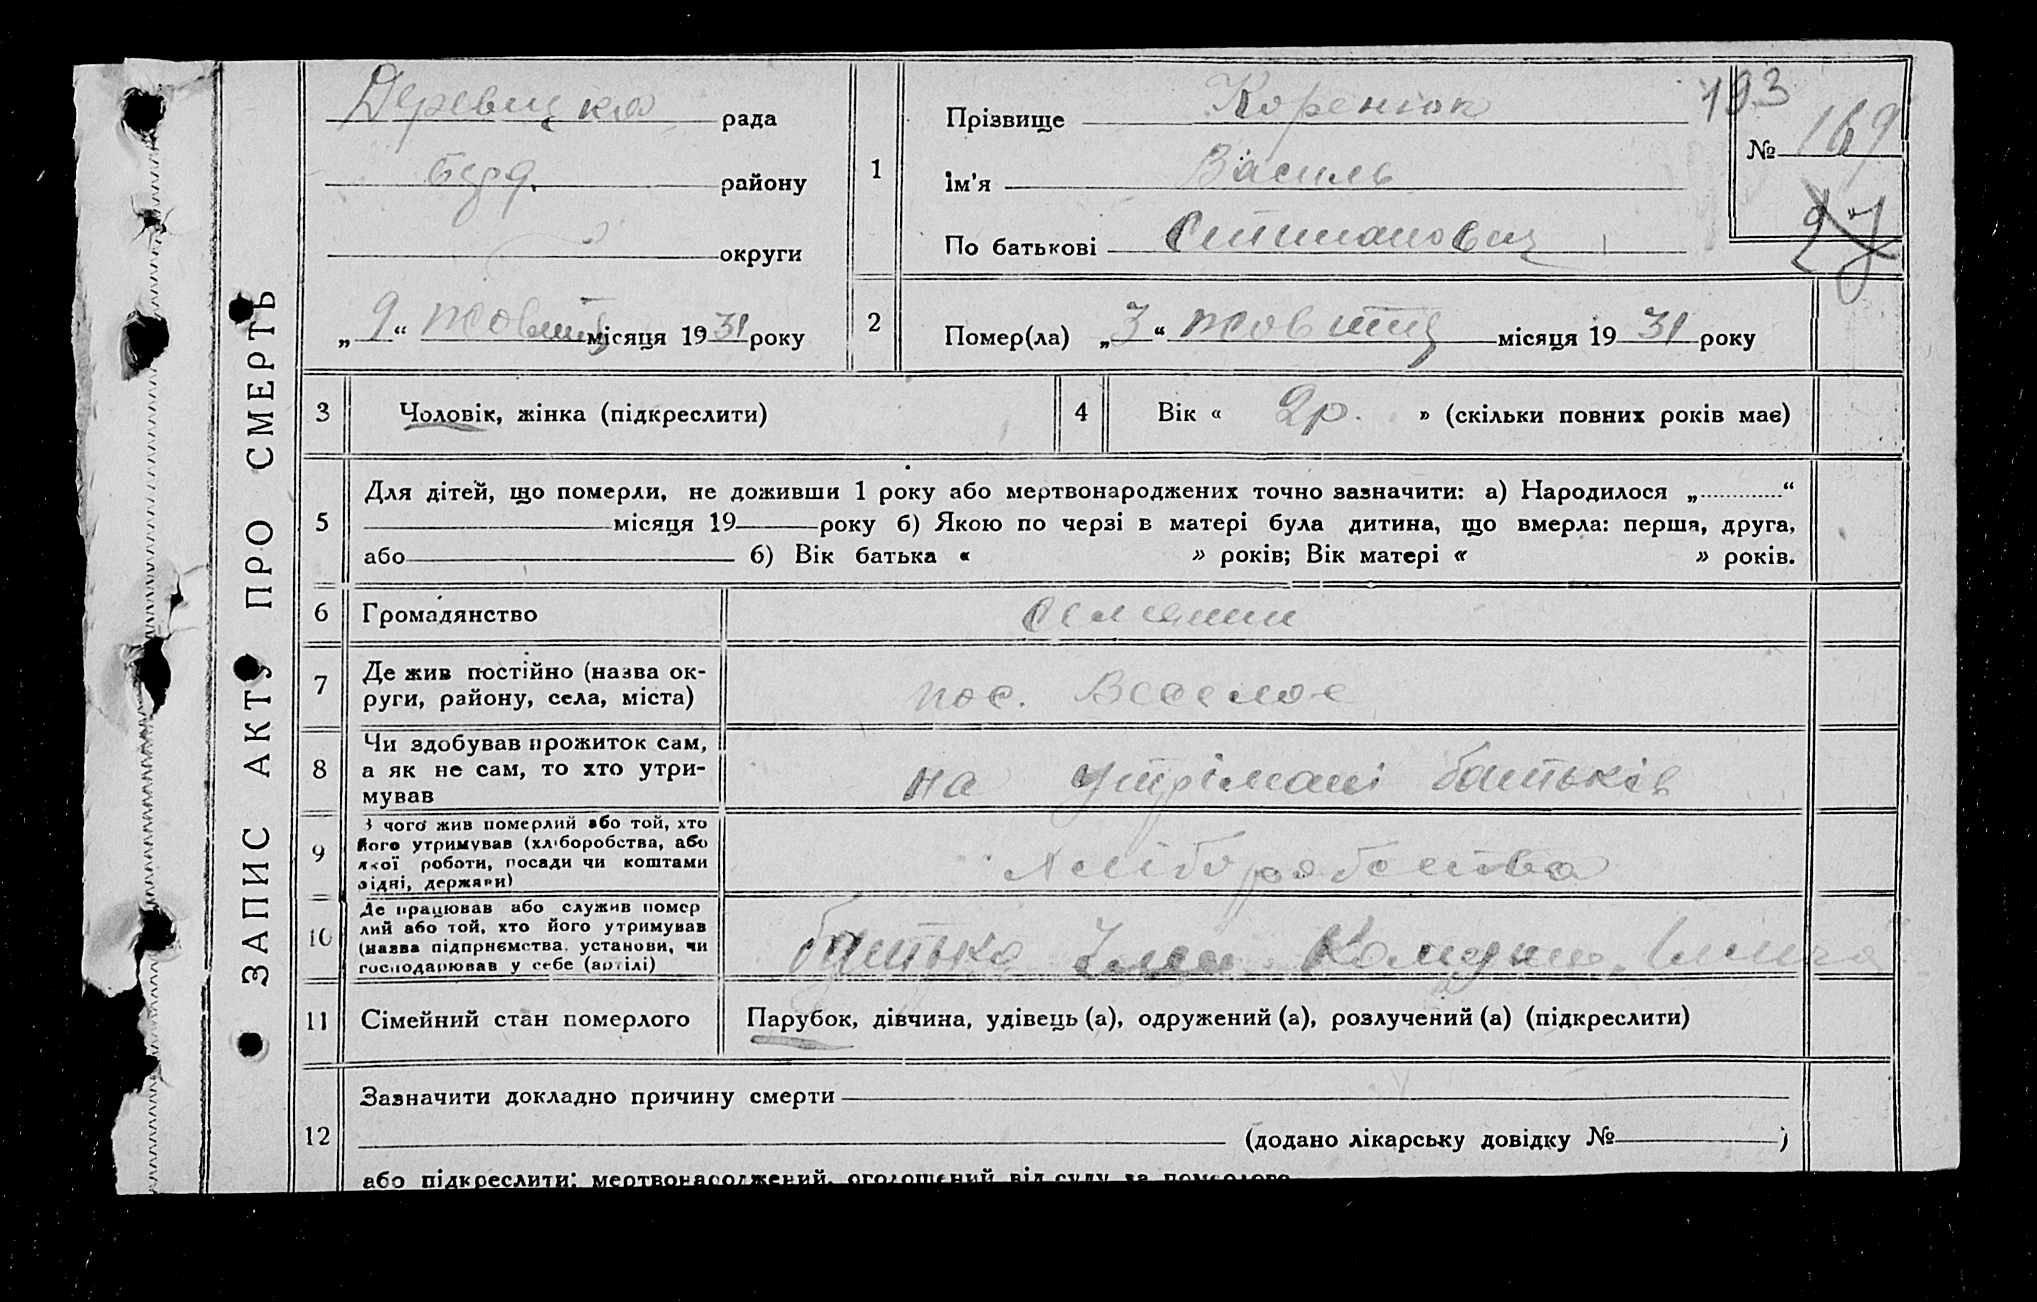 ЗАПИС АКТУ ПРО СМЕРТЬ
Деревицка рада
района
округи
„ 9 “ жовтня місяця 19 31 року
193
№ 169
27
1
Прізвище Коренюк
Ім'я Василь
По батькові
2
Помер(ла) „ 3 “ місяця 19 31 року
3 Чоловік, жінка (підкреслити)
4 Вік « 2 р. » (скільки повних років має)
5
Для дітей, що померли, не доживши 1 року або мертвонароджених точно зазначити: а) Народилося „ “
місяця 19 року б) Якою по черзі в матері була дитина, що вмерла: перша, друга,
або б) Вік батька « » років; Вік матері « » років.
6 Громадянство
7
Де жив постійно (назва ок-
руги, району, села, міста)
пос. Веселое
8
Чи здобував прожиток сам,
а як не сам, то хто утри-
мував
на утрімані батьків
9
З чого жив померлий або той, хто
його утримував (хліборобства, або
якої роботи, посади чи коштами
рідні, держави)
хліборобства
10
Де працював або служив помер
лий або той, хто його утримував
(назва підприємства, установи, чи
господарював у себе (артілі)
батько
11 Сімейний стан померлого
Парубок, дівчина, удівець (а), одружений (а), розлучений (а) (підкреслити)
12
Зазначити докладно причину смерти
(додано лікарську довідку № )
або підкреслити: мертвонароджений, оголошений від суду за померлого